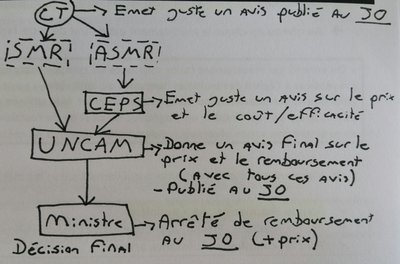 CT → Emet juste un avis publié au JO
SMR ASMR
CEPS → Emet juste un avis sur le prix
et le coût/efficacité
UNCAM → Donne un avis final sur le
prix et le remboursement
(avec tous ces avis)
- Publié au JO
Ministre → Arrêté de remboursement
au JO (+prix)
Décision Final